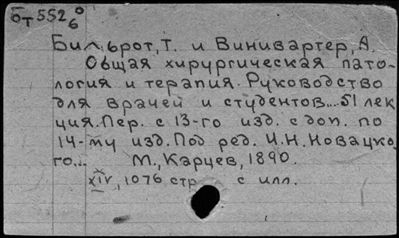 бт 552 0/6
Бильрот, Т. и Винивартер, А.
Общая хирургическая пато-
логия и терапия. Руководство
для врачей и студентов... 51 лек
ция. Пер. с 13-го изд. с доп. по
14-му изд. Под ред. И.Н. Новацко
го... М., Карцев, 1890.
XIV, 1076 стр с илл.